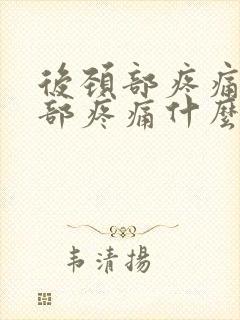 後頸部疼痛
部疼痛什麼
韦清揚